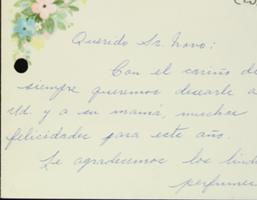 Querido Sr. Novo:
Con el cariño de
siempre queremos desearle a
Ud. y a su mamá, muchas
felicidades para este año.
Le agradecemos los lindos
perfumes